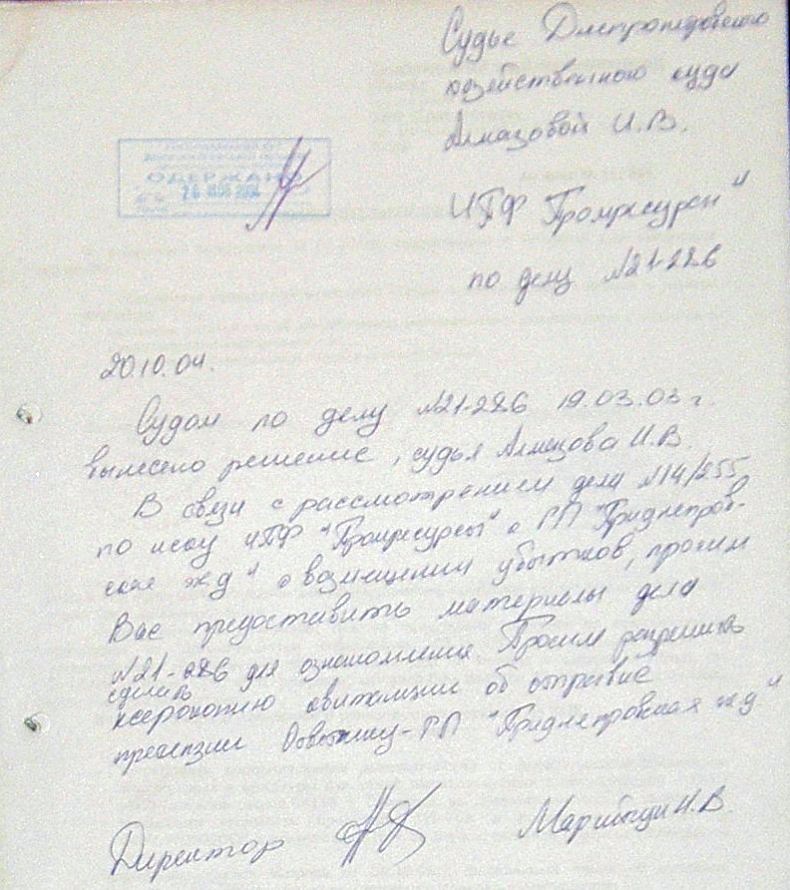 Судье Днепропетровского
хозяйственного суда
Алмазовой И.В.
ОДЕРЖАНО
ИПФ "Промресурсы"
по делу №21-286
20.10.04.
Судом по делу №21-286 19.03.03 г.
вынесено решение, судья Алмазова И.В.
В связи с рассмотрением дела №14/255
по иску ИПФ "Промресурсы" о РП "Приднепров-
ская жд" о возмещении убытков, просим
Вас предоставить материалы дела
№21-286 для ознакомления. Просим разрешить
сделать
ксерокопию квитанции об отправке
претензии Ответчику-РП "Приднепровская жд"
Директор